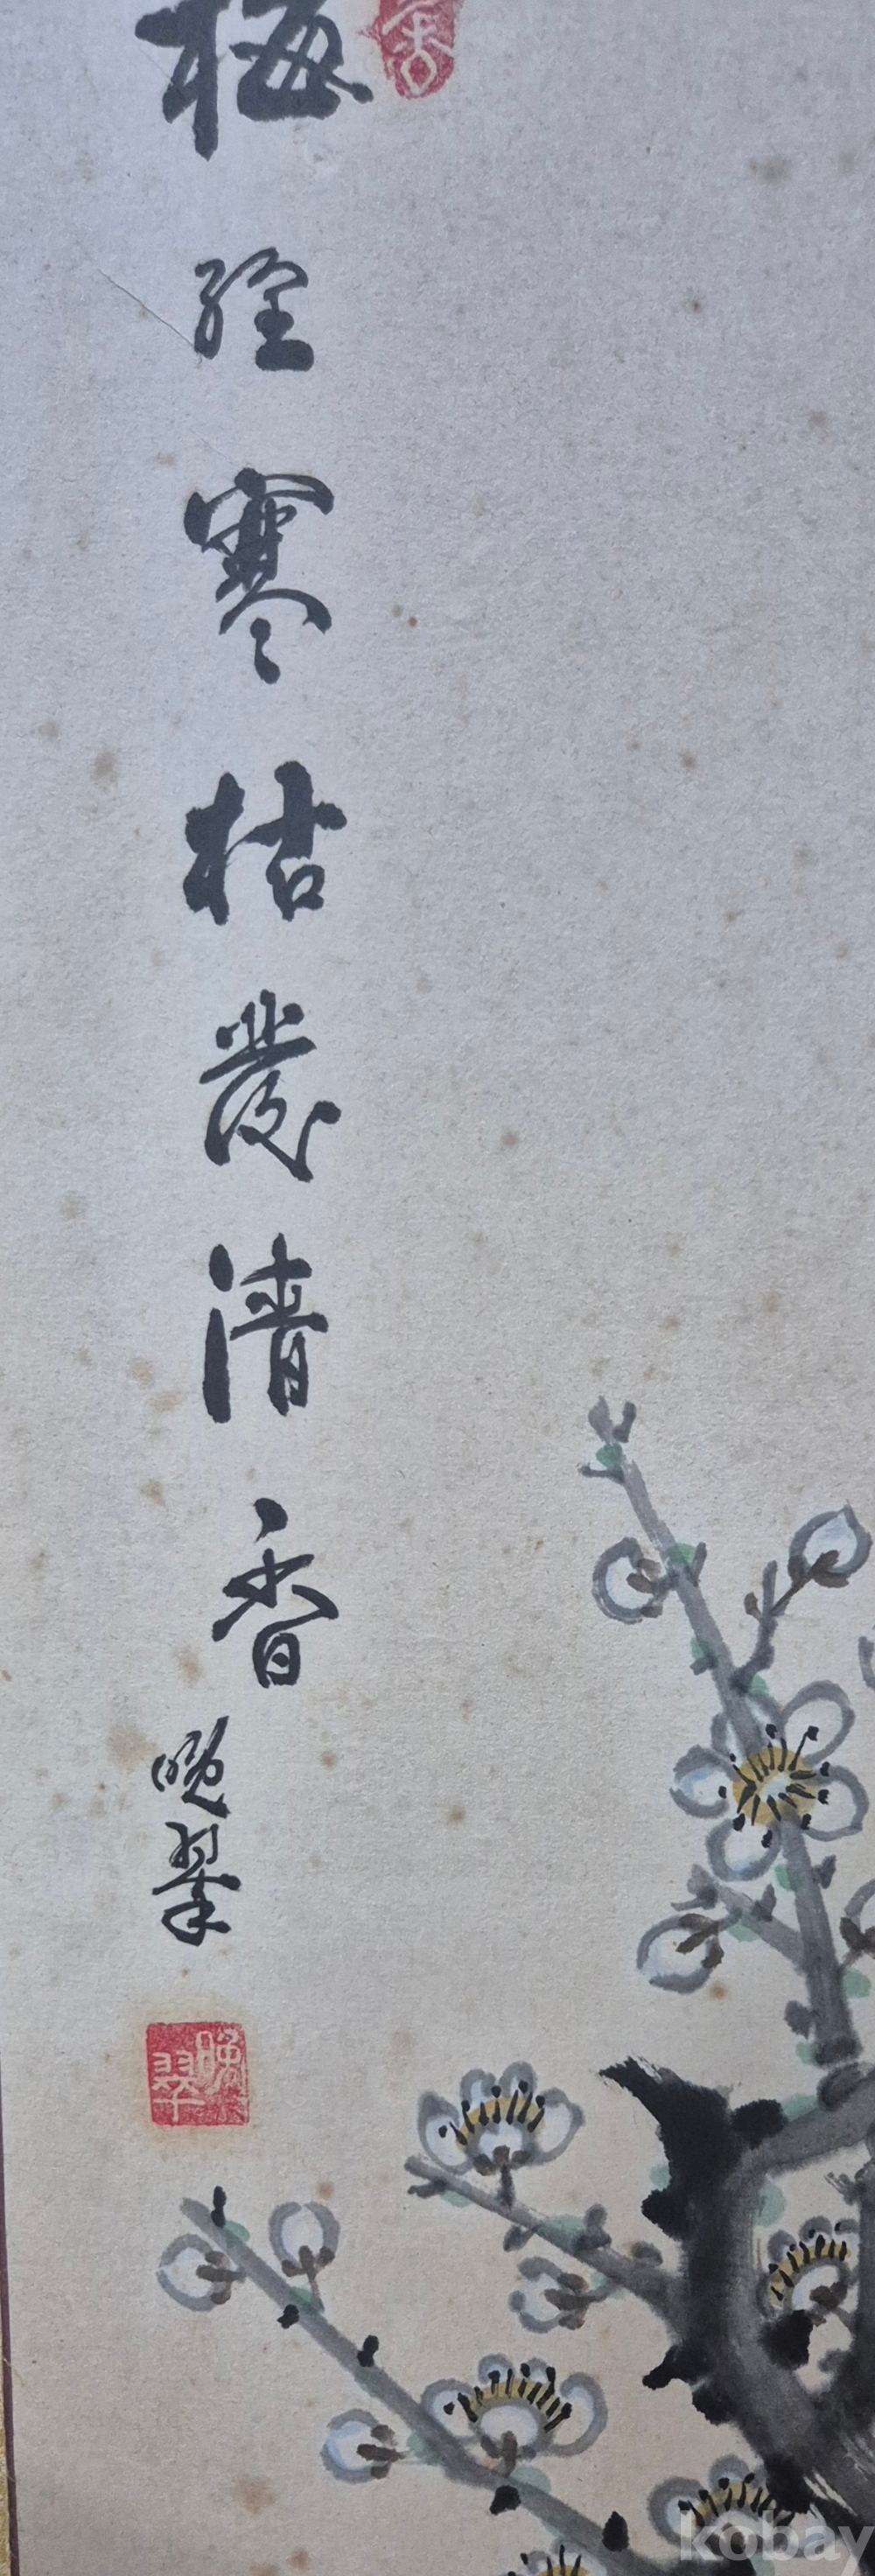 梅經寒枯發清香
晩翠
晩翠
kobay